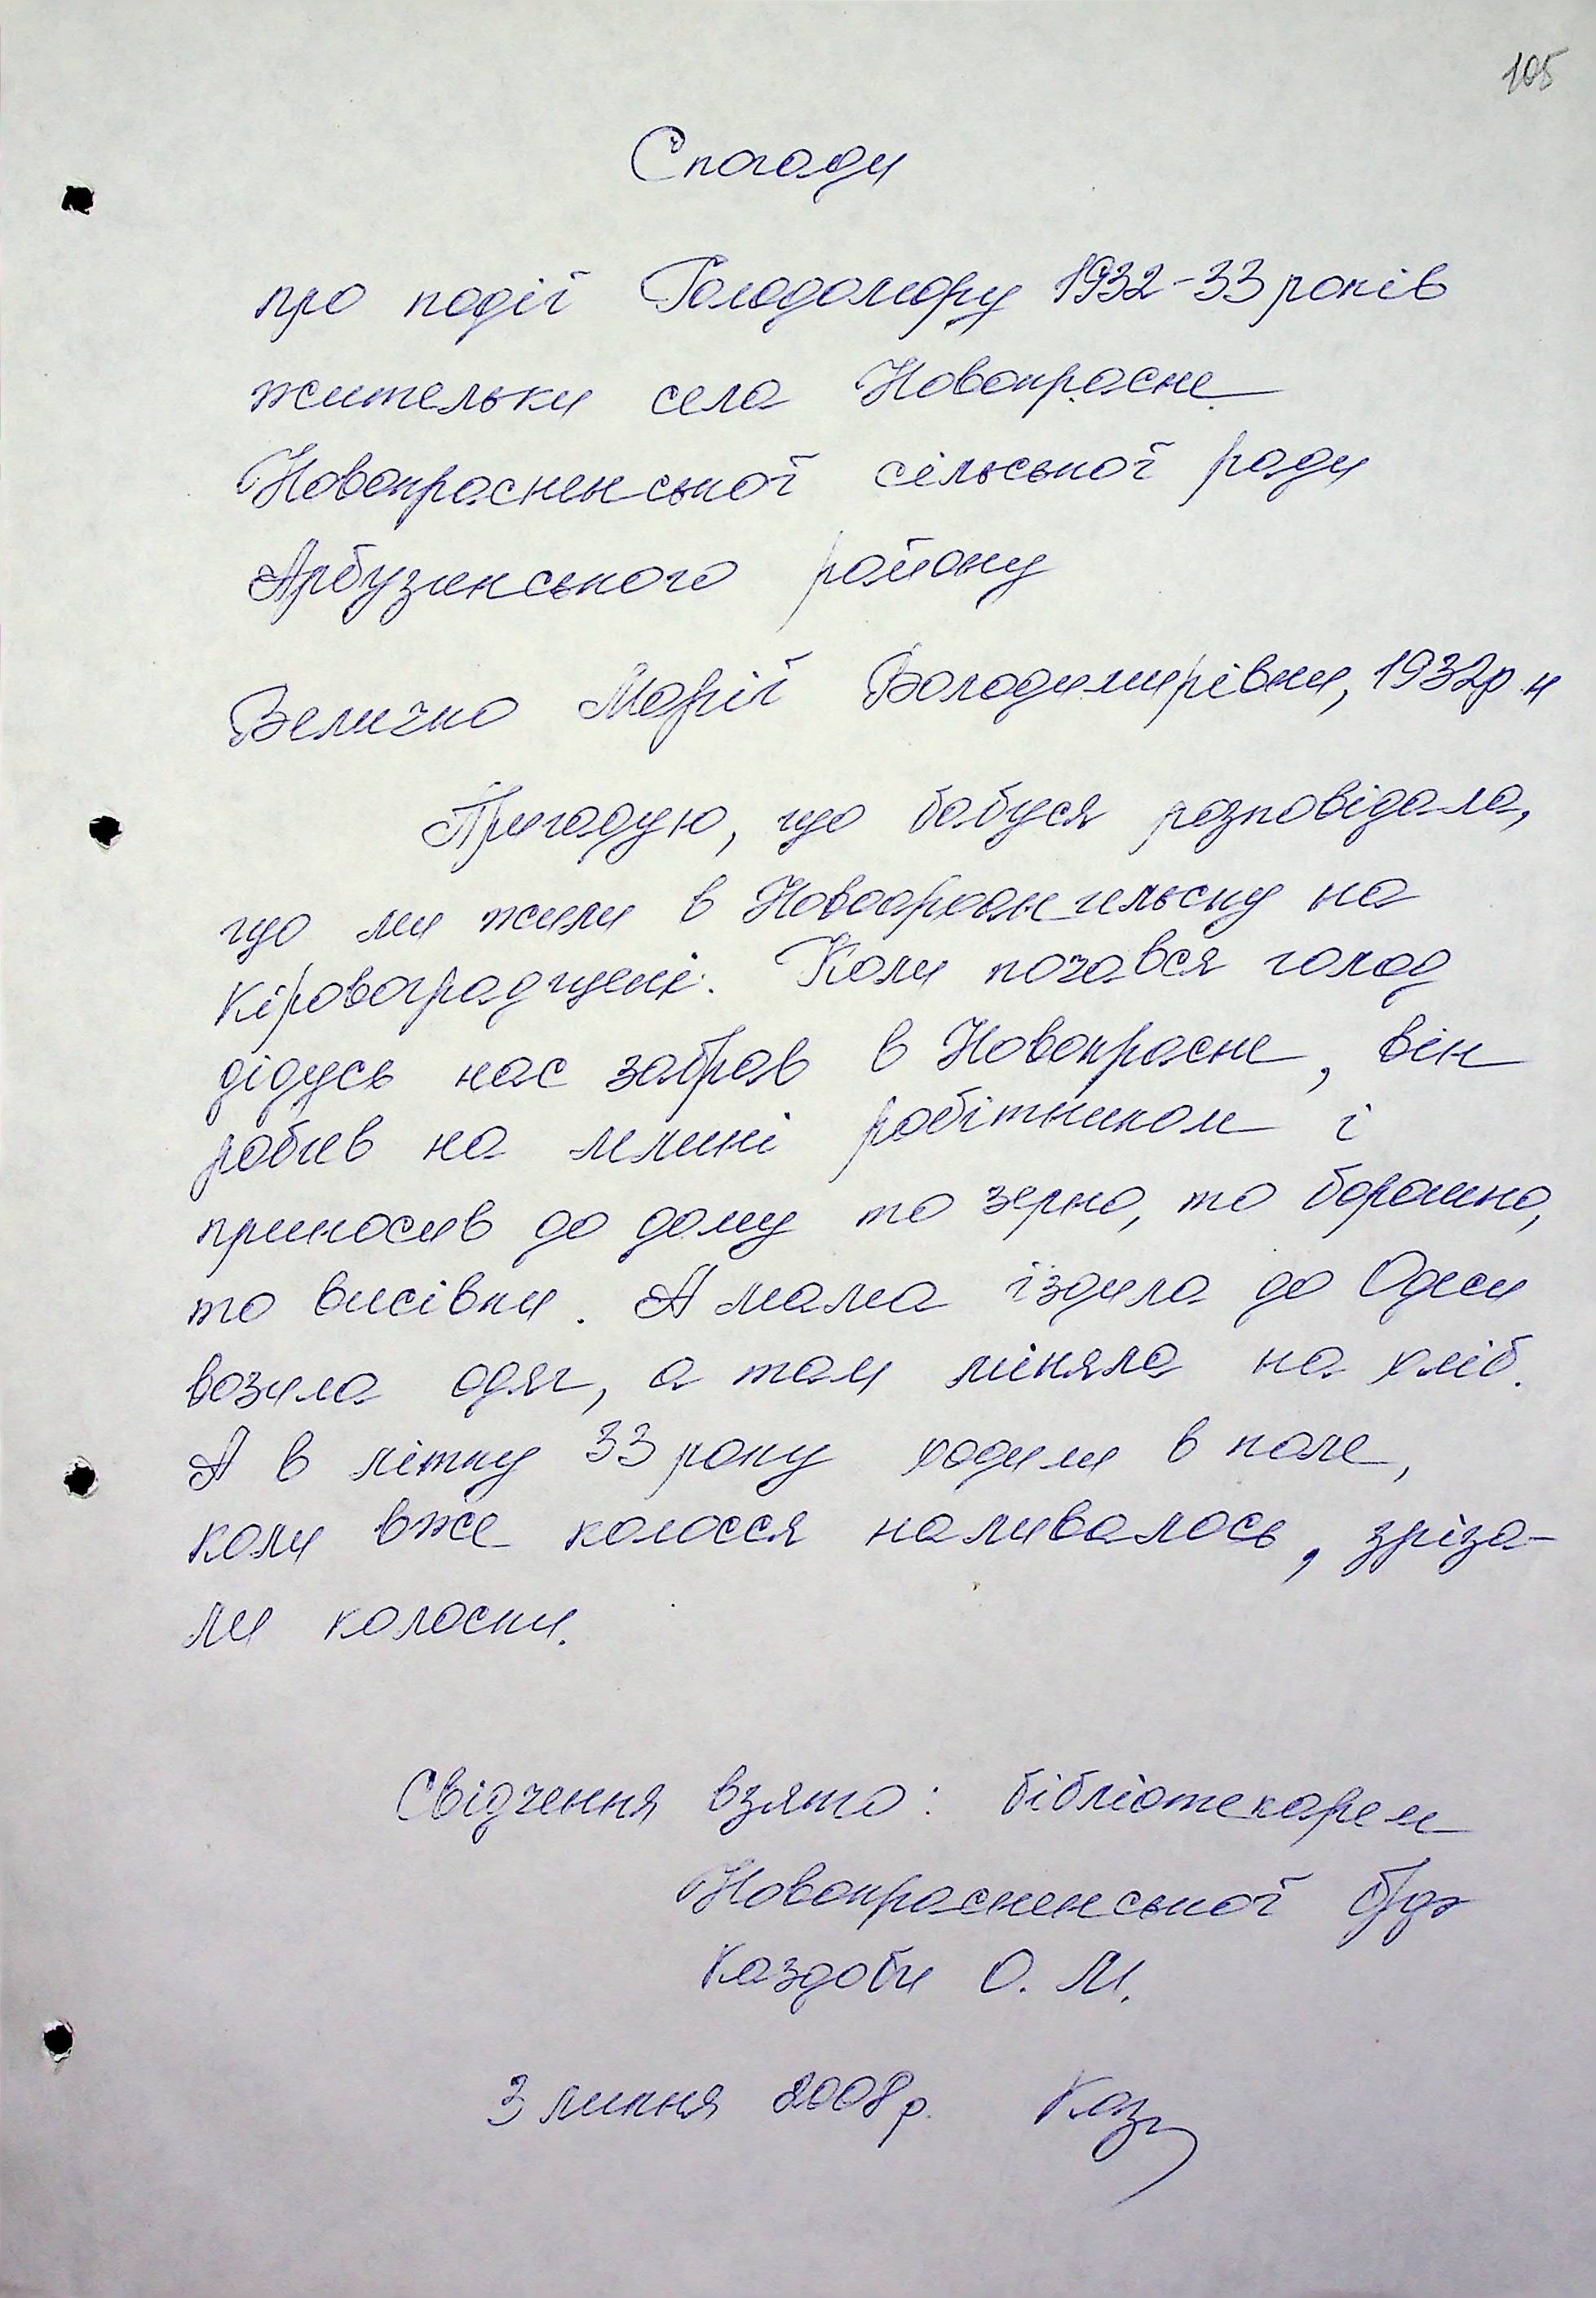 105
Спогади
про події Голодомору 1932-33 років
жительки села Новокрасне
Новокрасненської сільської ради
Арбузинського району
Величко Марії Володимирівни, 1932р н
Пригадую, що бабуся розповідала,
що ми жили в Новоархангельську на
Кіровоградщені. Коли почався голод
дідусь нас забрав в Новокрасне, він
робив на млині робітником і
приносив до дому то зерно, то борошно,
то висівки. А мама їздила до Одеси
возила одяг, а там міняла на хліб.
А в літку 33 року ходили в поле,
коли вже колосся наливалось, зріза-
ли колоски.
Свідчення взято: бібліотекарем
Новокрасненської
Каздоби О. М.
3 липня 2008 р. Каз